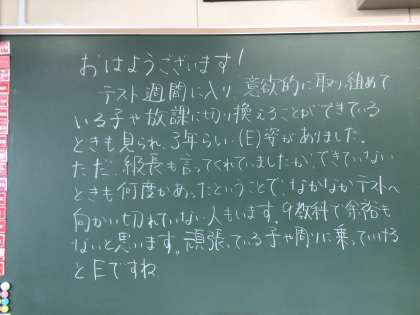 おはようございます!
テスト週間に入り、意欲的に取り組めて
いる子や放課に切り換えることができている
ときも見られ、3年らしい(E)姿がありました。
ただ、級長も言ってくれていましたが、できていない
ときも何度かあったということで、なかなかテストへ
向かい切れていない人もいます。9教科で余裕も
ないと思います。頑張っている子や周りに乗っていける
とEですね